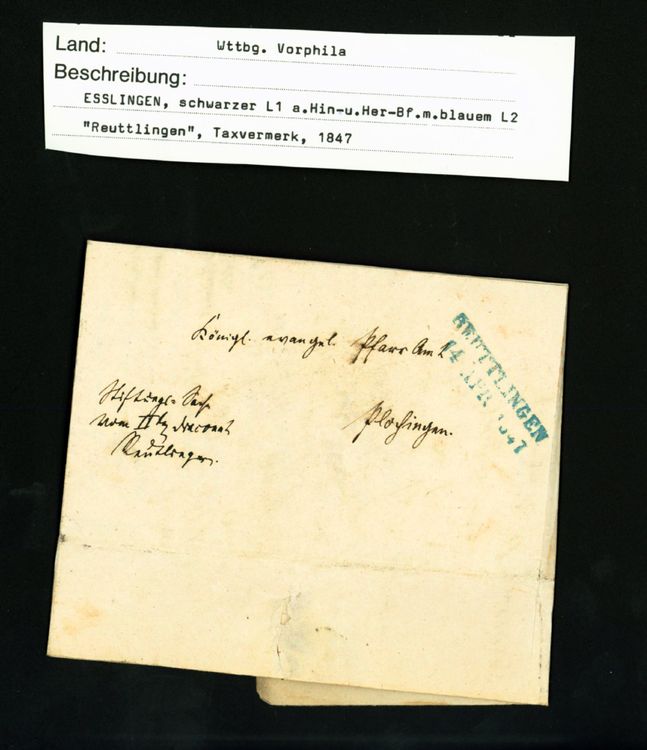 Land: Wttbg. Vorphila
Beschreibung:
ESSLINGEN, schwarzer L1 a.Hin-u.Her-Bf.m.blauem L2
"Reuttlingen", Taxvermerk, 1847
REUTTLINGEN
14 APR 1847
Königl. evangel. Pfarr Amt
Stiftungs-Sache
vom II
Plochingen.
Reutlingen.